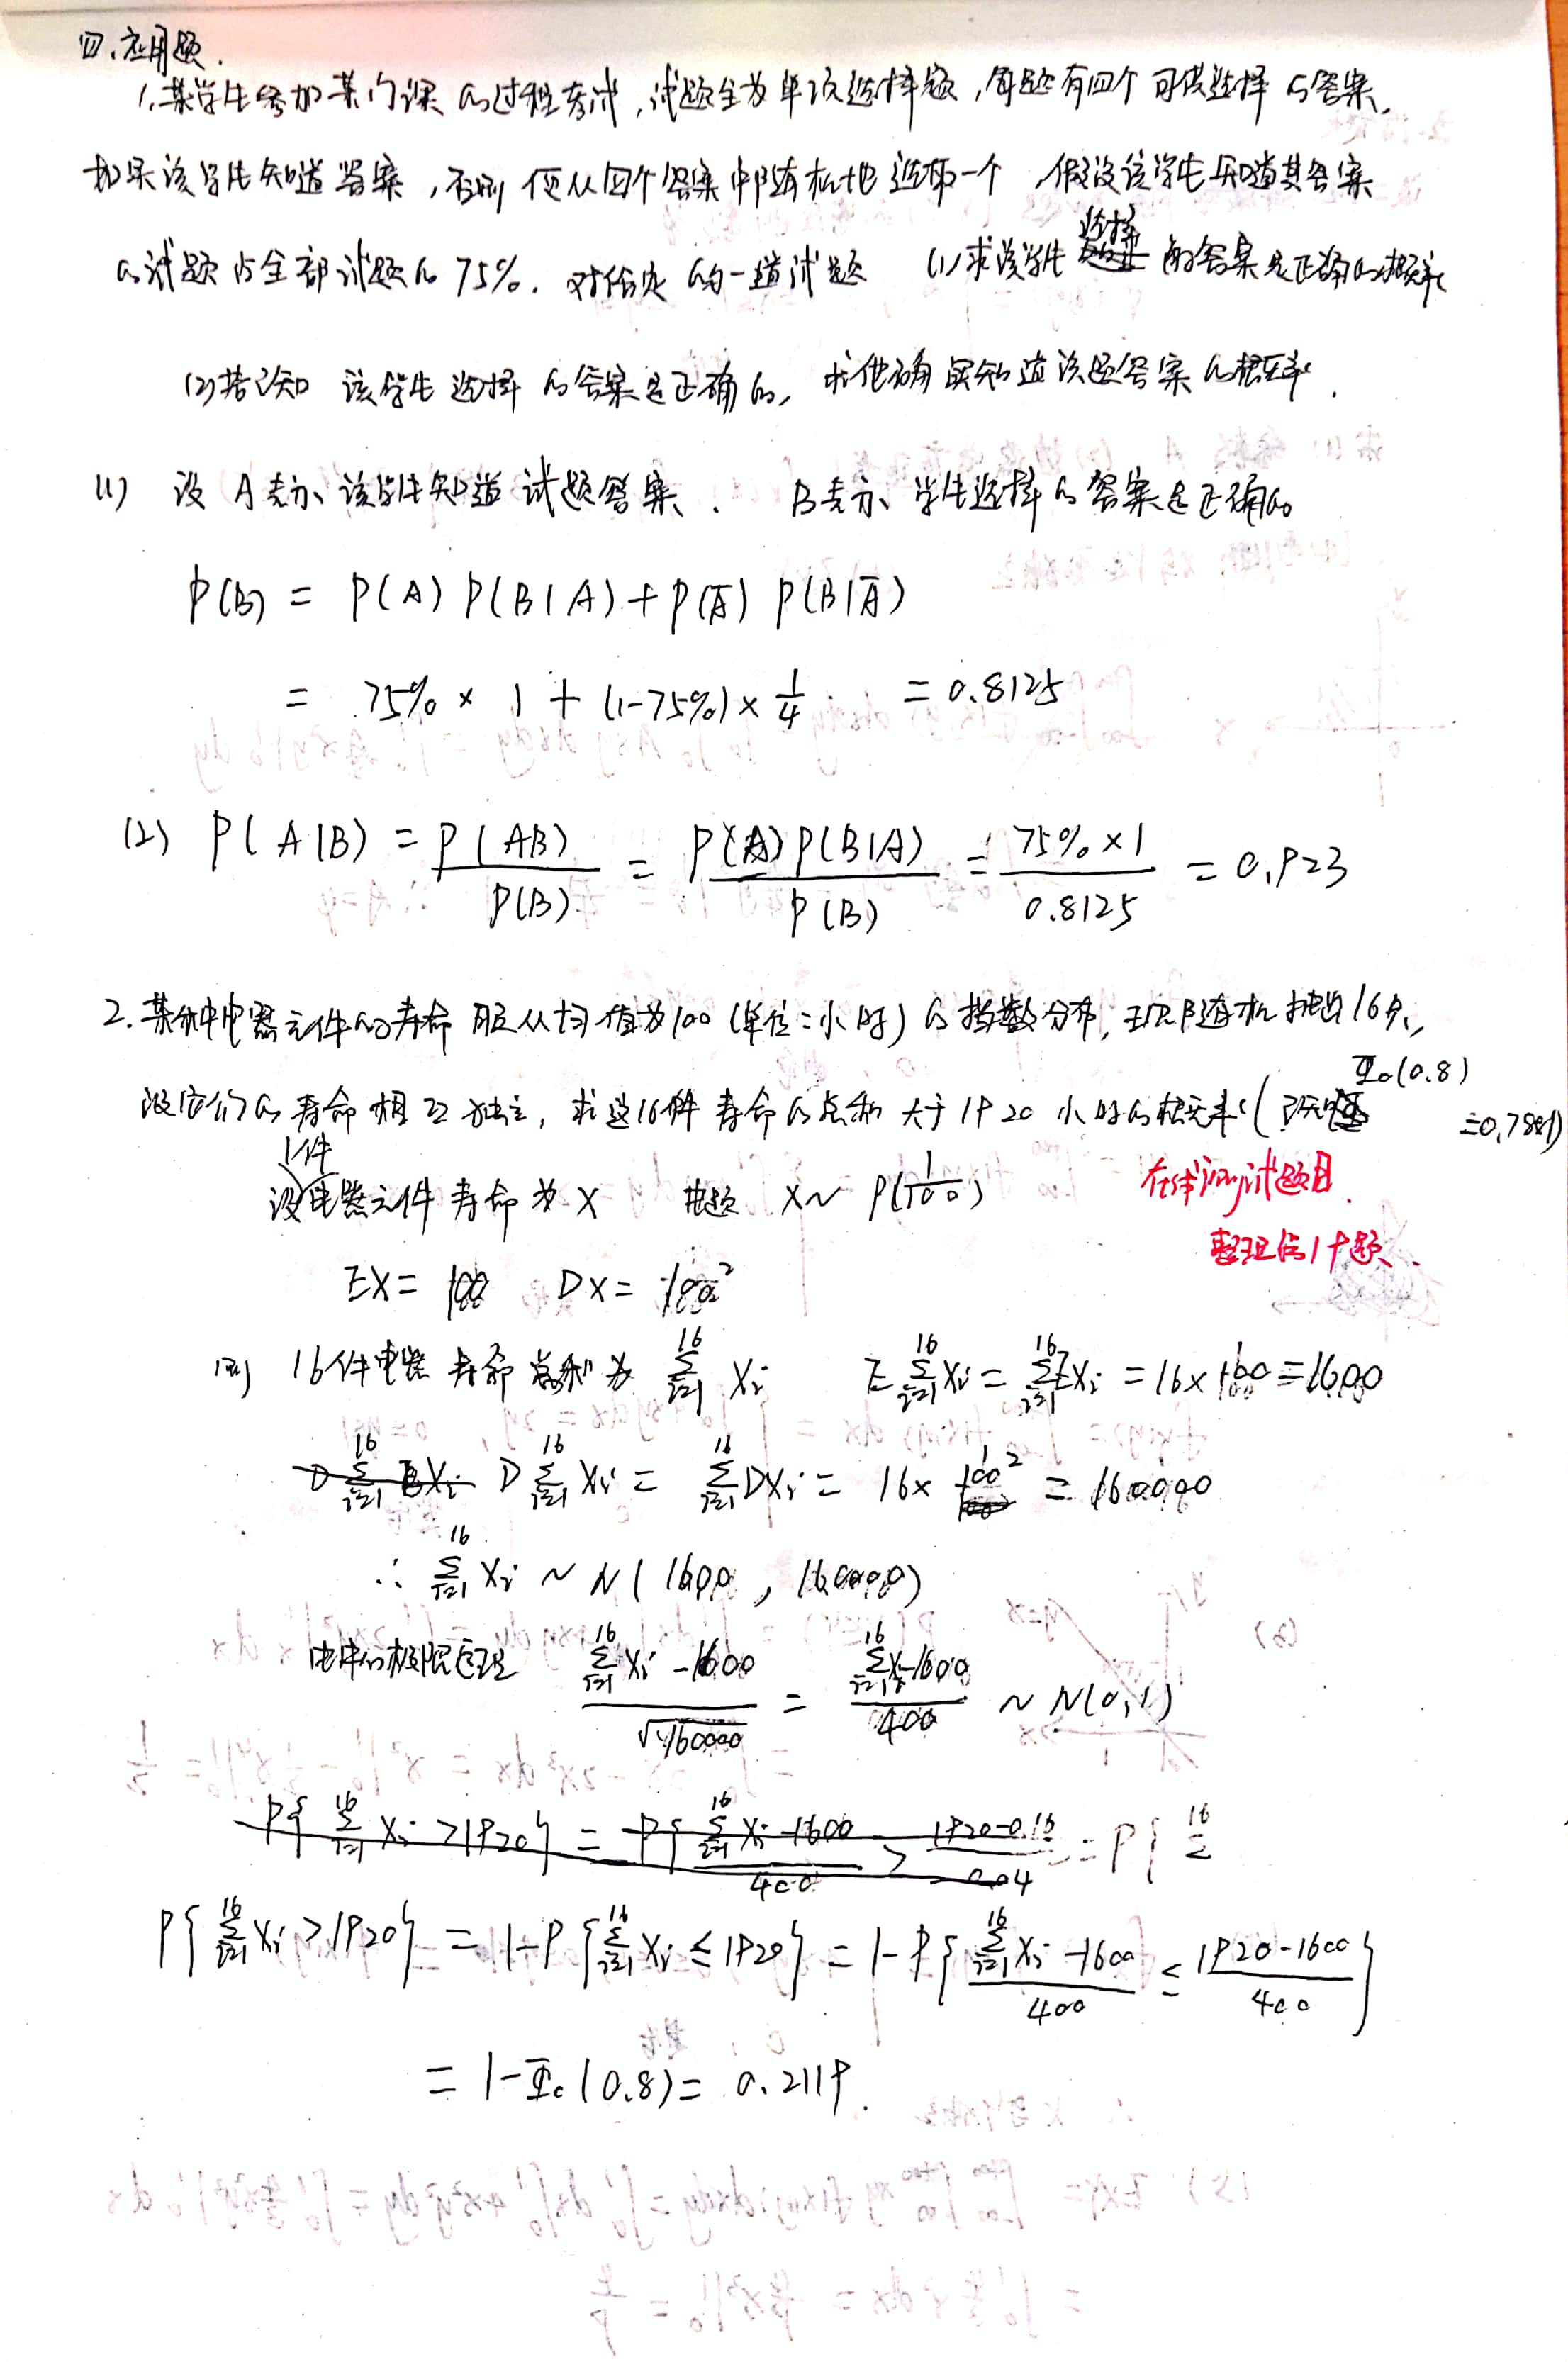 四.应用题.
1.某学生参加某门课的过程考试,试题全为单项选择题,每题有四个可供选择的答案.
如果该学生知道答案,否则便从四个答案中随机地选取一个,假设该学生知道其答案
的试题占全部试题的75%.对给定的一道试题 (1)求该学生选择的答案是正确的概率
(2)若已知 该学生选择的答案是正确的,求他确实知道该题答案的概率.
(1) 设A表示该学生知道试题答案. B表示学生选择的答案是正确的
P(B) = P(A)P(B|A)+P(Ā)P(B|Ā)
= 75% × 1 + (1-75%)×1/4 = 0.8125
(2) P(A|B) = P(AB)/P(B) = P(A)P(B|A)/P(B) = 75%×1/0.8125 = 0.923
2.某种电器元件的寿命服从均值为100(单位:小时)的指数分布,现随机抽出16只,
设它们的寿命相互独立,求这16件寿命的总和大于1920小时的概率(已知Φ₀(0.8)=0.7881)
设1件电器元件寿命为X 由题 X~P(1/100)
题目.
整理后19题.
EX= 100 DX= 100²
则 16件电器寿命总和为 ∑_{i=1}^{16} Xi E∑_{i=1}^{16} Xi = ∑_{i=1}^{16} EXi = 16×100 = 1600
D∑_{i=1}^{16} Xi = ∑_{i=1}^{16} DXi = 16×100² = 160000
∴ ∑_{i=1}^{16} Xi ~ N(1600, 160000)
由中心极限定理 (∑_{i=1}^{16} Xi -1600)/√160000 = (∑_{i=1}^{16} Xi-1600)/400 ~ N(0,1)
P{∑_{i=1}^{16} Xi >1920} = P{(∑_{i=1}^{16} Xi -1600)/400 > (1920-0.16)/0.04} = P{∑^{16}
P{∑_{i=1}^{16} Xi >1920} = 1-P{∑_{i=1}^{16} Xi ≤ 1920} = 1-P{(∑_{i=1}^{16} Xi -1600)/400 ≤ (1920-1600)/400}
= 1-Φ₀(0.8)= 0.2119.